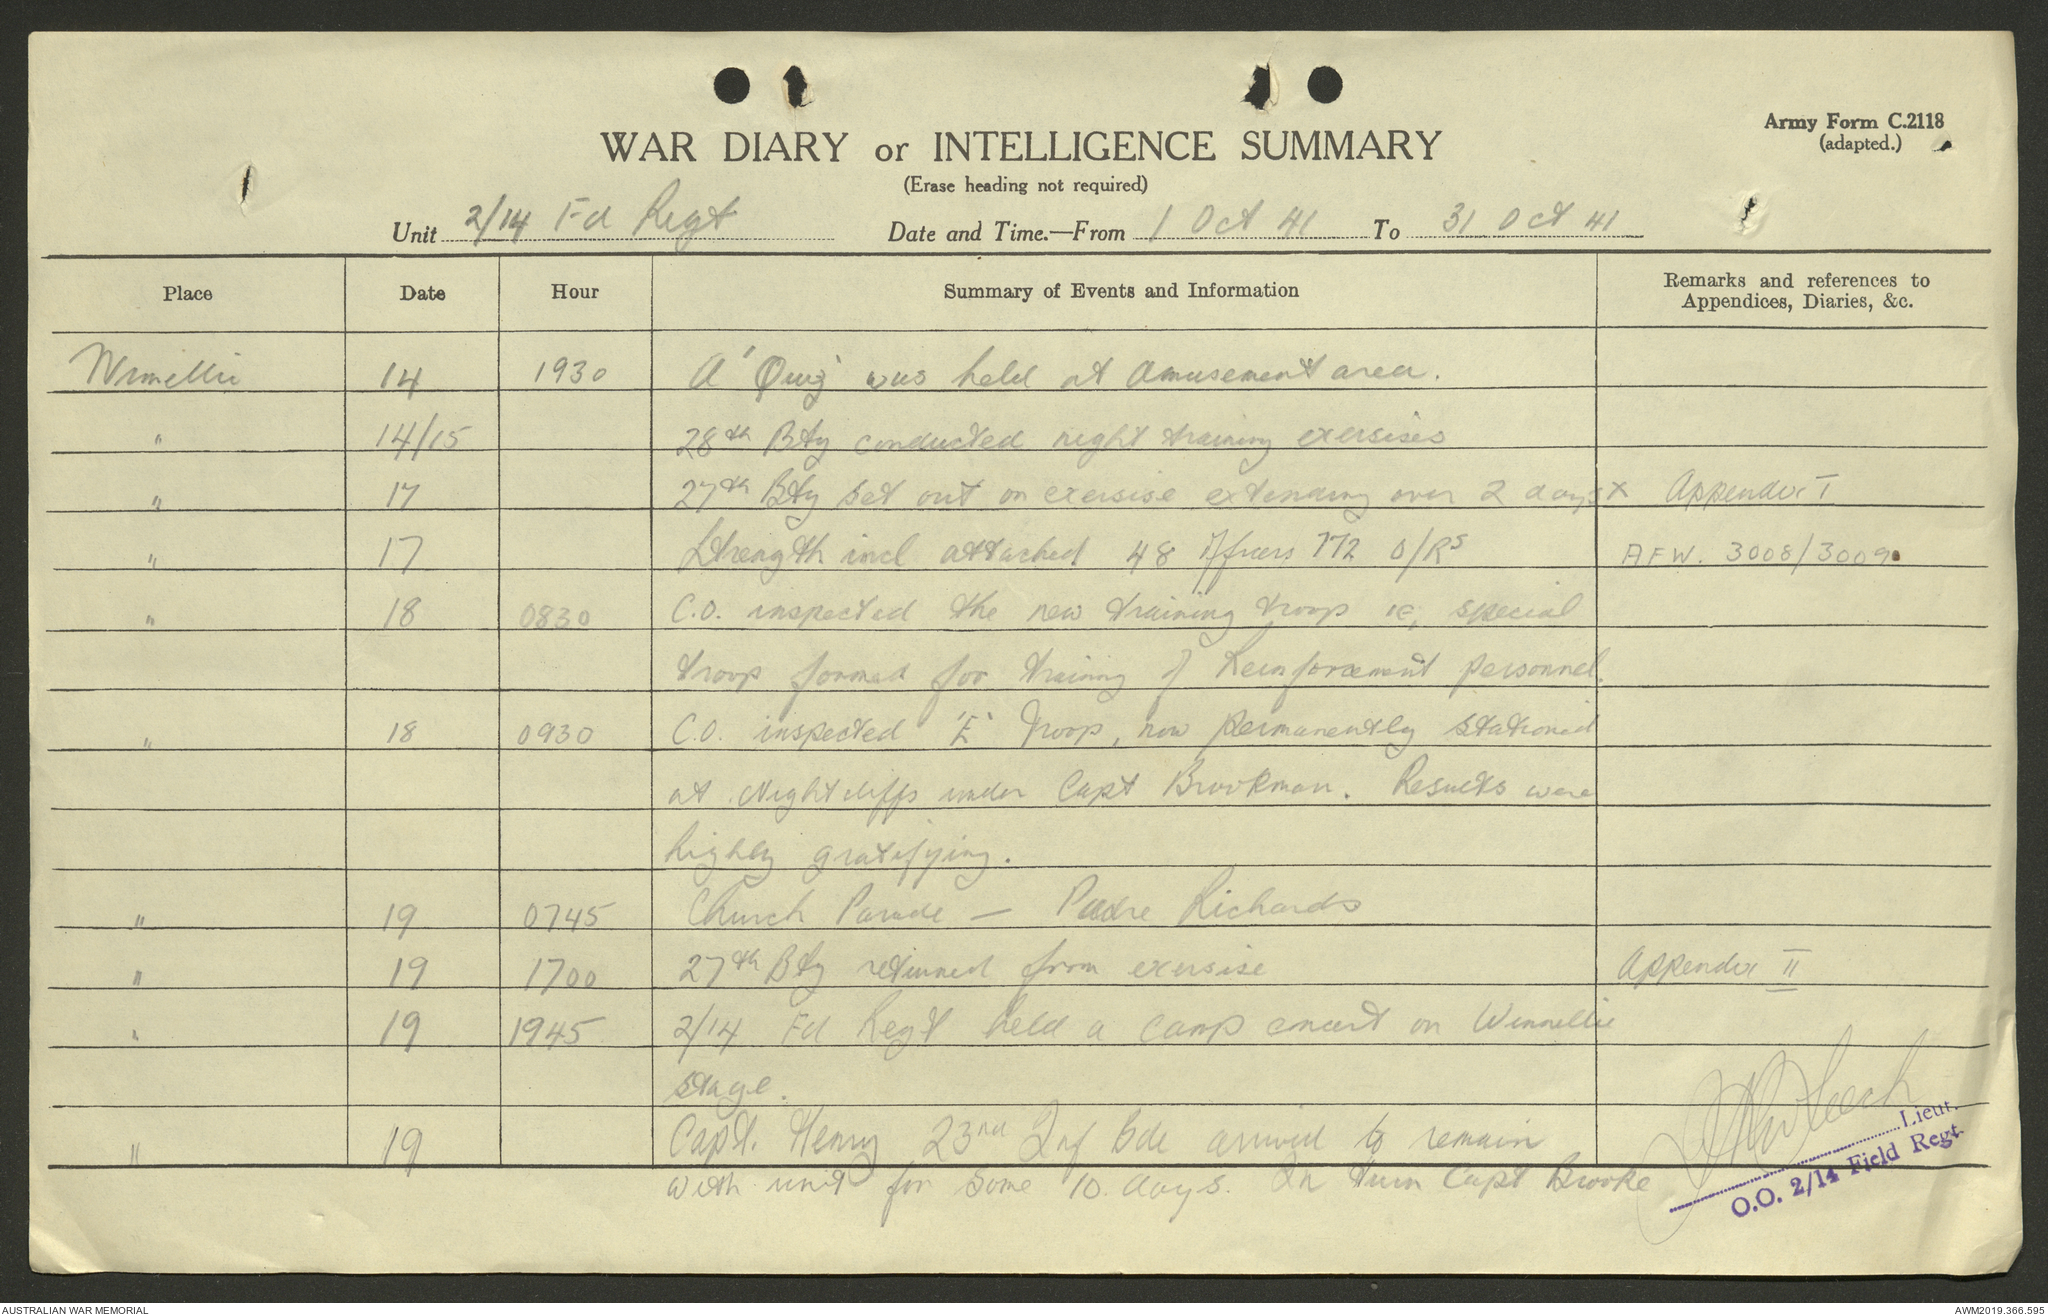 Army Form C.2118
(adapted.)
WAR DIARY or INTELLIGENCE SUMMARY
(Erase heading not required)
Unit 2/14 Fd Regt Date and Time.—From 1 Oct 41 To 31 Oct 41
Place Date Hour Summary of Events and Information Remarks and references to Appendices, Diaries, &c.
Winnellie 14 1930 A 'Quiz' was held at Amusement area.
" 14/15 28th Bty conducted night training exersises
" 17 27th Bty set out on exersise extending over 2 days x Appendix I
" 17 Strength incl attached 48 Officers 772 O/Rs AFW. 3008/3009.
" 18 0830 C.O. inspected the new training troop ie, special
troop formed for training of Reinforcement personnel.
" 18 0930 C.O. inspected 'E' Troop, now permanently stationed
at Nightcliffs under Capt Brookman. Results were
highly gratifying.
" 19 0745 Church Parade — Padre Richards
" 19 1700 27th Bty returned from exersise Appendix II
" 19 1945 2/14 Fd Regt held a camp concert on Winnellie
stage.
" 19 Capt. Henry 23rd Inf Bde arrived to remain
with unit for some 10 days. In turn Capt Brooke
Lieut.
O.O. 2/14 Field Regt
AUSTRALIAN WAR MEMORIAL
AWM2019.366.595